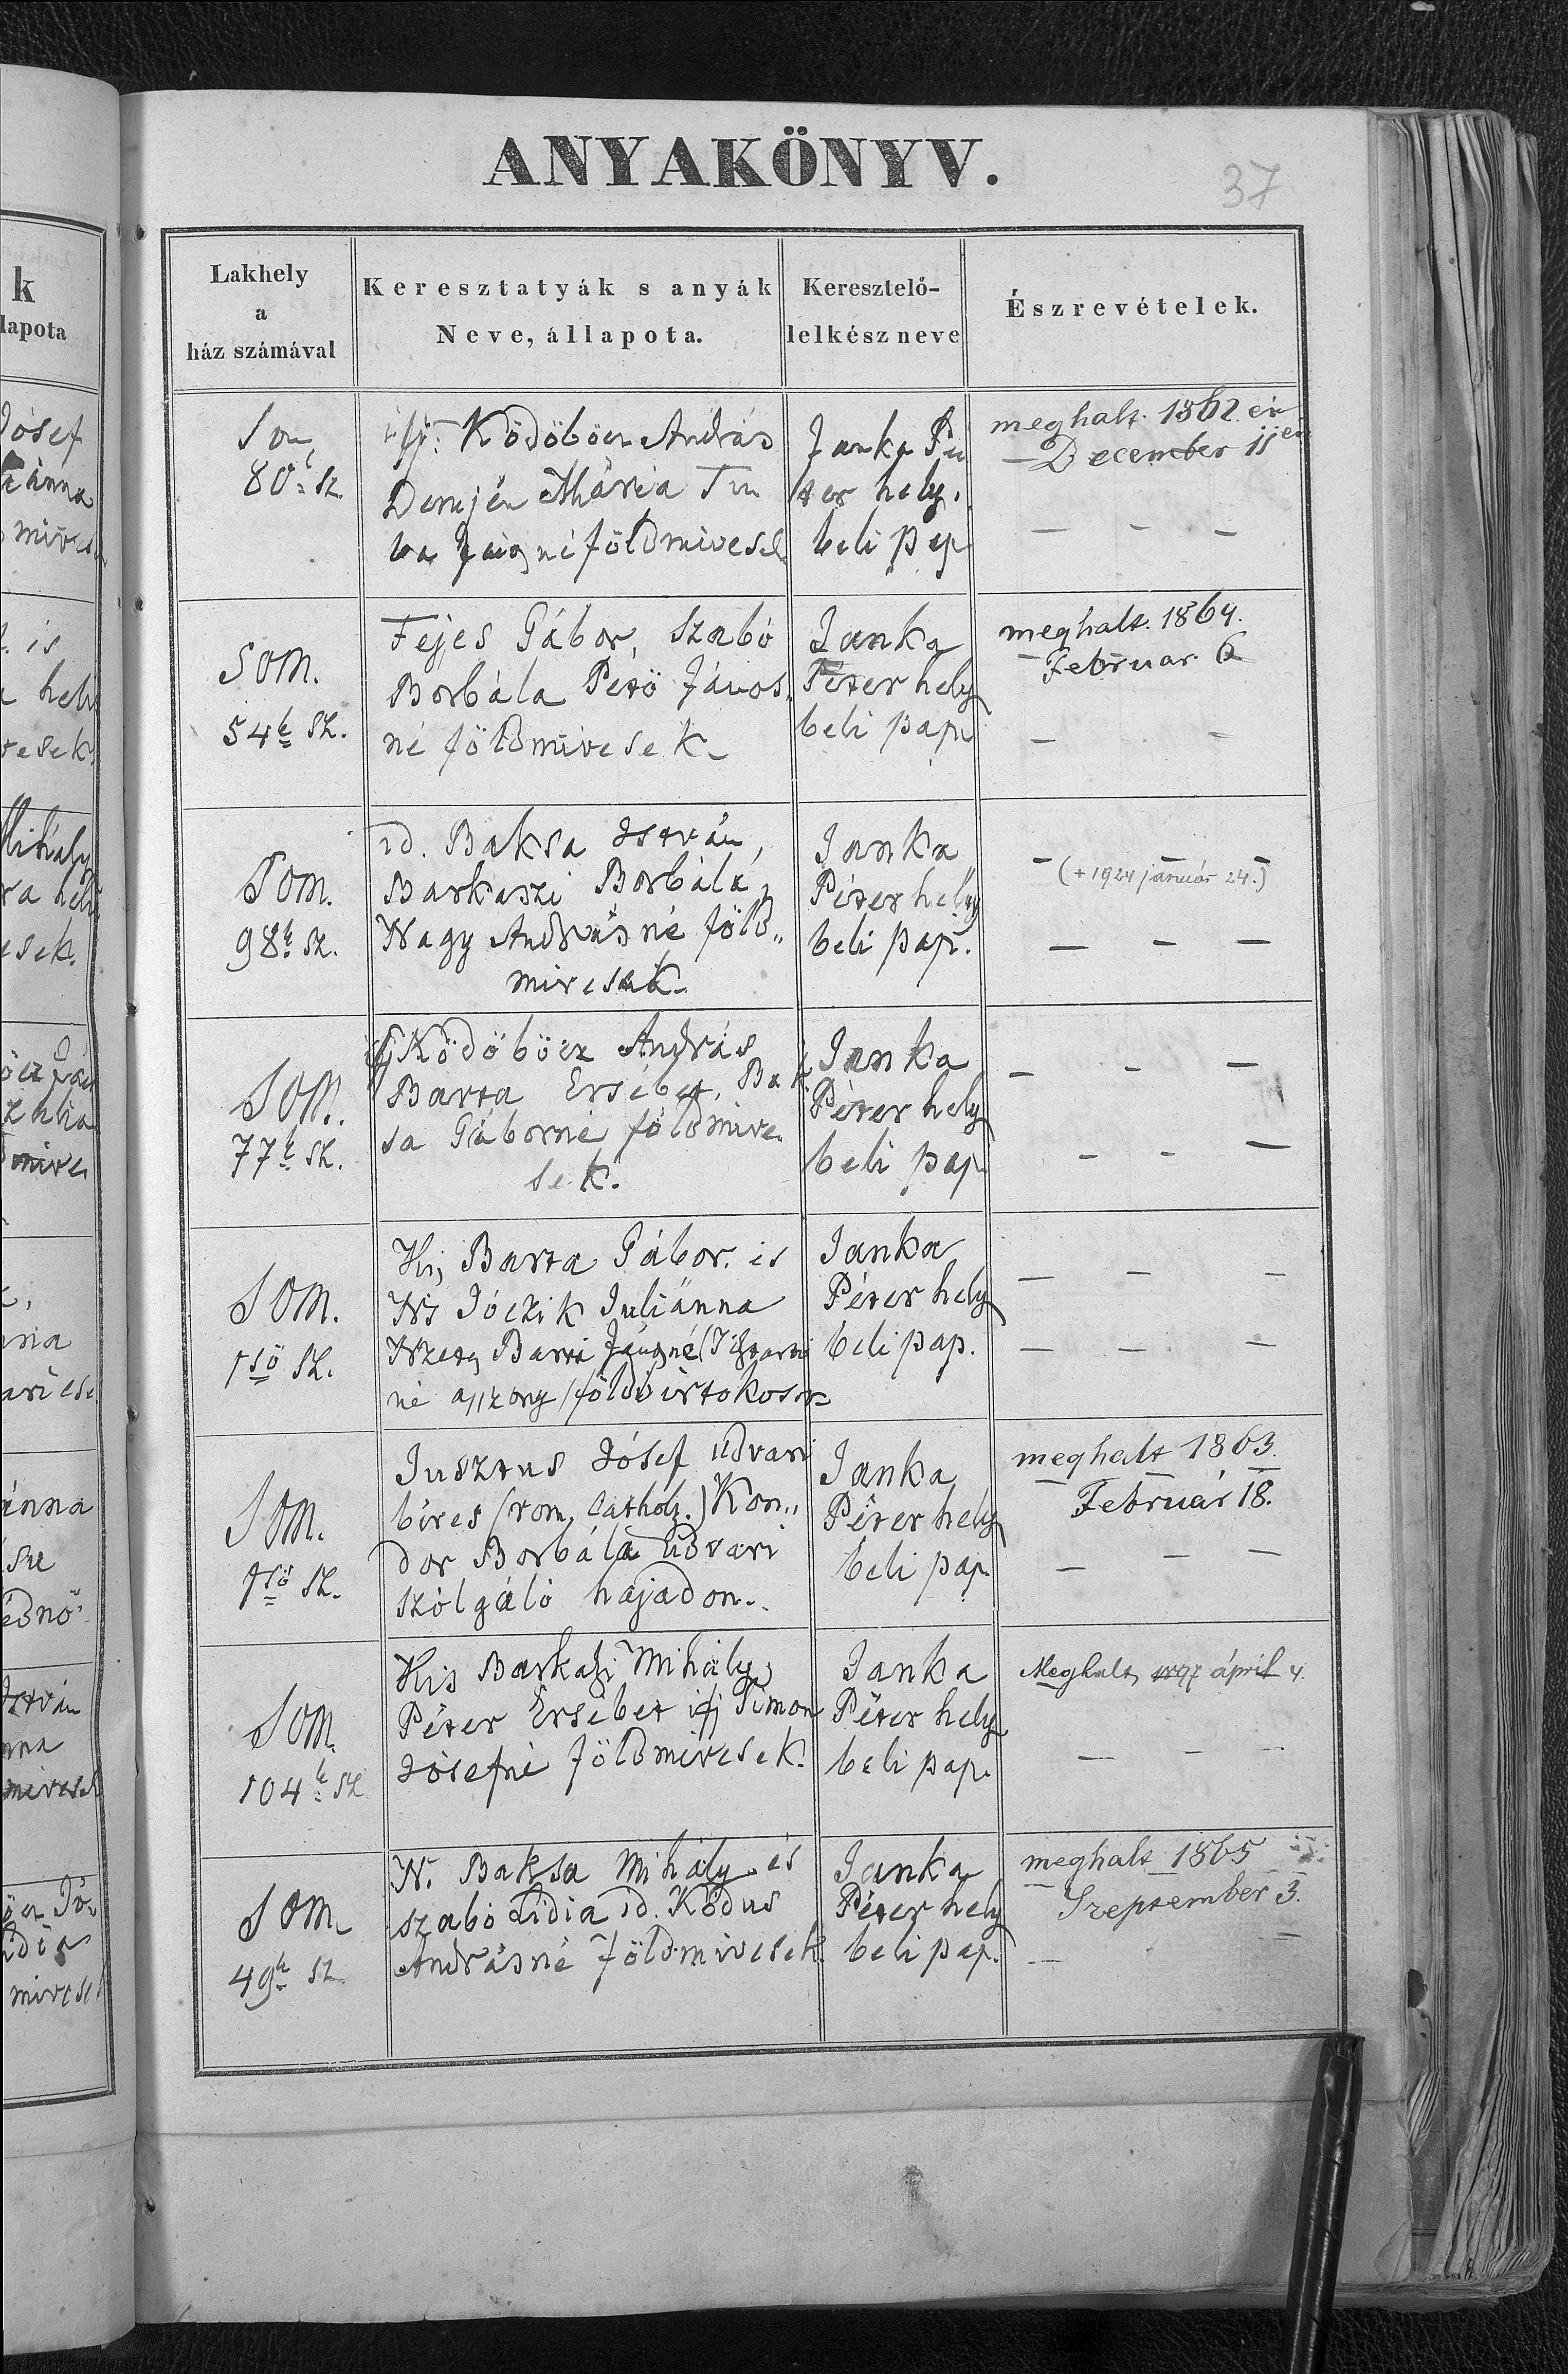 ANYAKÖNYV.
37
Lakhely
a
ház számával
Keresztatyák s anyák
Neve, állapota.
Keresztelő-
lelkész neve
Észrevételek.
Som
80. sz.
ifj. Ködöböcz András
Demjén Mária
földmivesek
Janka Pé
ter hely.
beli pap
meghalt 1862 év
December 11
Som.
54k sz.
Fejes Gábor, Szabó
Borbála Pető János
né földmivesek
Janka
Péter hely
beli pap.
meghalt. 1864.
Februar 6
Som.
98k sz.
id. Baksa István,
Barkaszi Borbála,
Nagy Andrásné föld„
mivesek.
Janka
Péter hely
beli pap.
(+1924 január 24.)
Som.
77k sz.
ifj Ködöböcz András
Barta Ersébet, Bak
sa Gáborné földmive„
sek.
Janka
Péter hely
beli pap
Som.
1ső sz.
Kis Barta Gábor. és
Ns Jóczik Juliánna
Nzets Barta Jánosné
né asszony földbirtokosok
Janka
Péter hely
beli pap.
Som.
1ső sz.
Jusztus Jósef udvari
béres (rom. Cathol.) Kon„
dor Borbála udvari
szólgáló hajadon.
Janka
Péter hely
beli pap
meghalt 1863.
Február 18.
Som.
104k sz
Kis Barkaszi Mihály,
Péter Ersébet ifj Simon
Jósefné földmivesek.
Janka
Péter hely
beli pap.
Meghalt, 1897 ápril 4.
Som
49k sz
N. Baksa Mihály és
Szabó Lidia id. Ködus
Andrásné földmivesek.
Janka
Péter hely
beli pap.
meghalt 1865
Szeptember 3.
k
lapota
Jósef